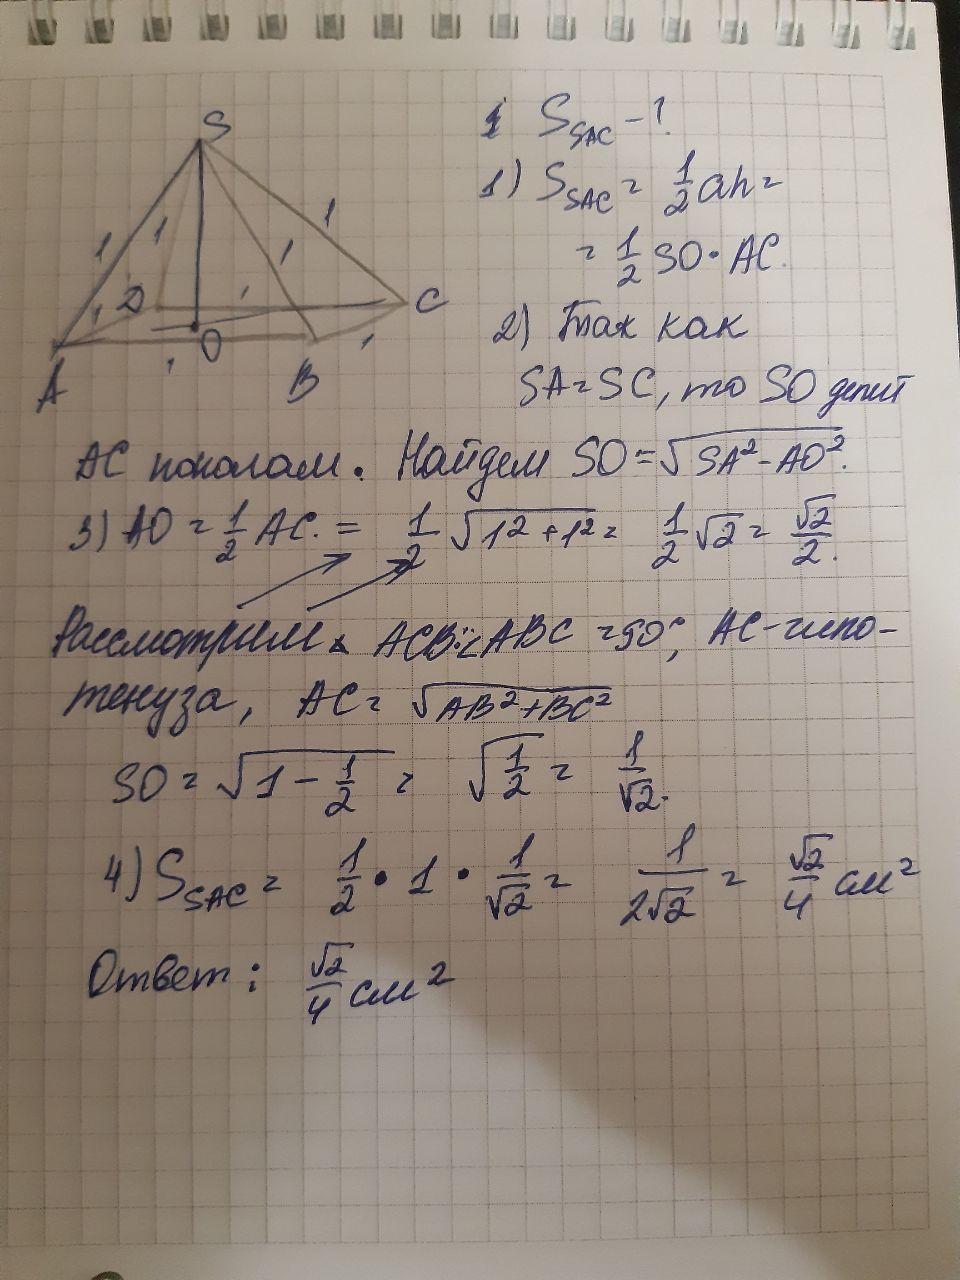 S
1
1
1
1
D
1
1
C
O
1
1
A
B
S_SAC - ?
1) S_SAC = 1/2 ah =
= 1/2 SO · AC.
2) Так как
SA = SC, то SO делит
AC пополам. Найдем SO = √(SA² - AO²).
3) AO = 1/2 AC. = 1/2 √(1² + 1²) = 1/2 √2 = √2/2.
Рассмотрим ACB: ∠ABC = 90°, AC - гипо-
тенуза, AC = √(AB² + BC²)
SO = √(1 - 1/2) = √(1/2) = 1/√2.
4) S_SAC = 1/2 · 1 · 1/√2 = 1/(2√2) = √2/4 см²
Ответ: √2/4 см²